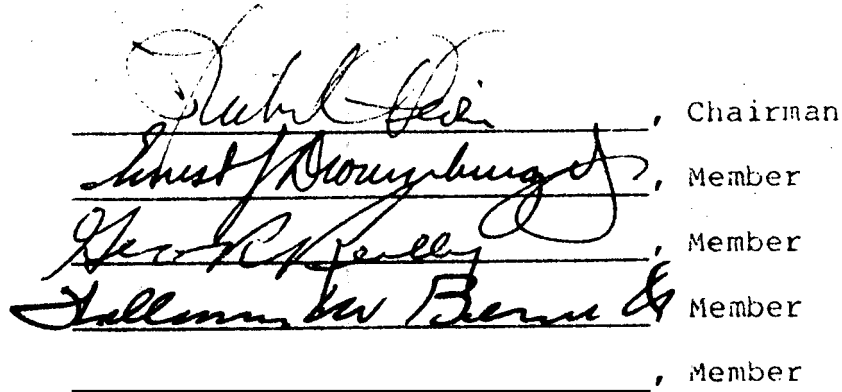 , Chairman
Ernest J Dronenburg Jr, Member
Geo R Reilly, Member
William M Bennett, Member
, Member